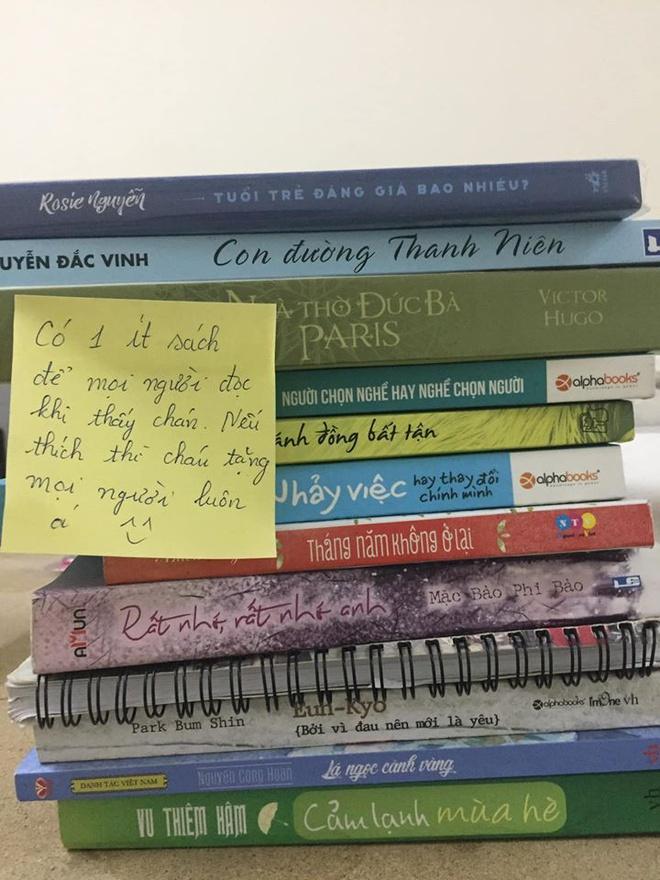 Rosie Nguyễn — TUỔI TRẺ ĐÁNG GIÁ BAO NHIÊU?
UYỄN ĐẮC VINH Con đường Thanh Niên
À THỜ ĐỨC BÀ PARIS VICTOR HUGO
Có 1 ít sách
để mọi người đọc
khi thấy chán. Nếu
thích thì cháu tặng
mọi người luôn
á ^^
NGƯỜI CHỌN NGHỀ HAY NGHỀ CHỌN NGƯỜI alphabooks
ánh đồng bất tận
Nhảy việc hay thay đổi chính mình alphabooks
Tháng năm không ở lại NT
AMUN Rất nhớ, rất nhớ anh Mặc Bảo Phi Bảo
Park Bum Shin Eun-Kyo {Bởi vì đau nên mới là yêu} alphabooks
DANH TÁC VIỆT NAM Nguyễn Công Hoan Lá ngọc cành vàng
VU THIÊM HẬM Cảm lạnh mùa hè vh